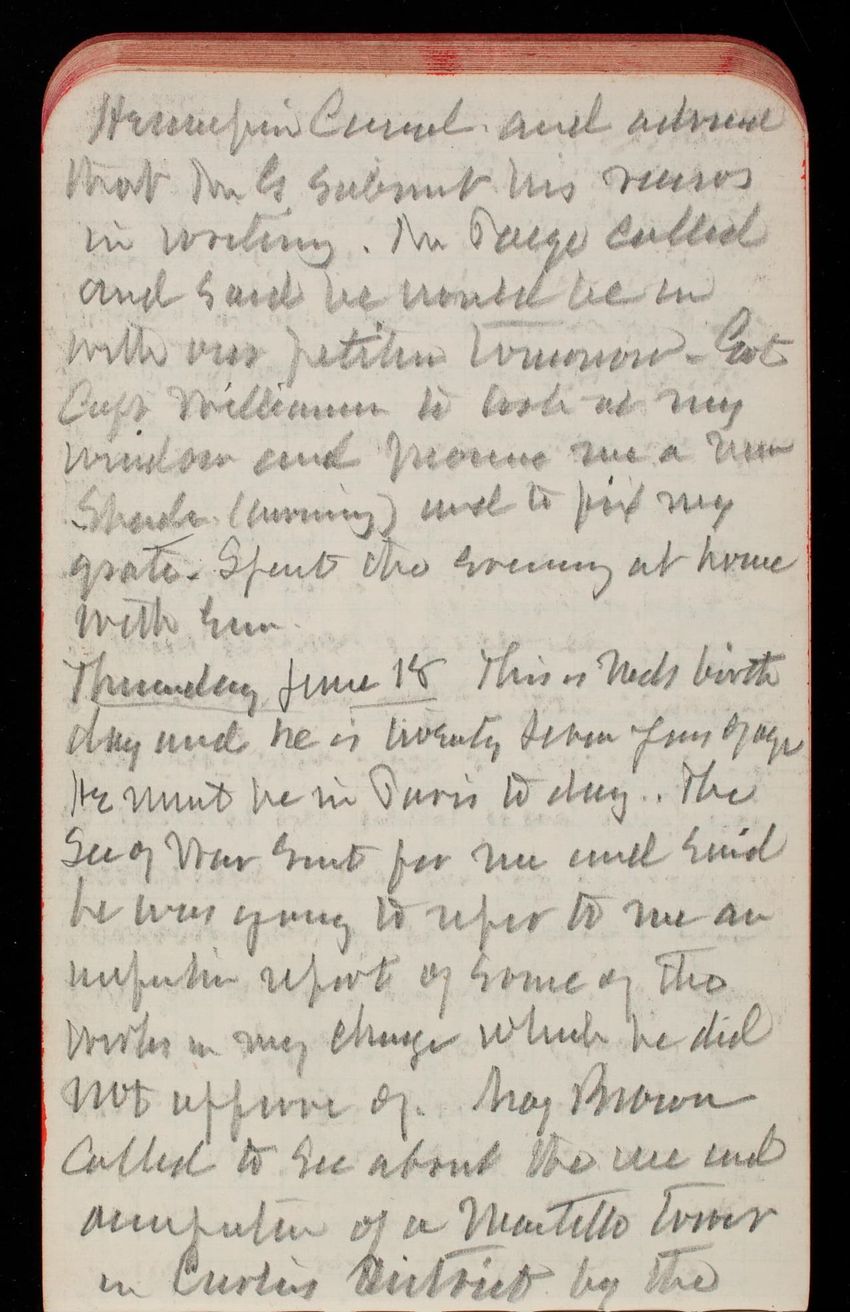 Hennepin Canal and advised
that Mr G submit his views
in writing. Mr Paige called
and said he would be in
with our petition tomorrow - Got
Capt Williams to look at my
window and promise me a new
Shade (awning) and to fix my
grate. Spent the evening at home
with Gen
Thursday June 18 This is Neds birth
day and he is twenty seven years of age
He must be in Paris to day.. The
Sec of War sent for me and said
he was going to refer to me an
inspection report of some of the
works in my charge which he did
not approve of. Maj Brown
called to see about the use and
occupation of a Martello tower
in District by the